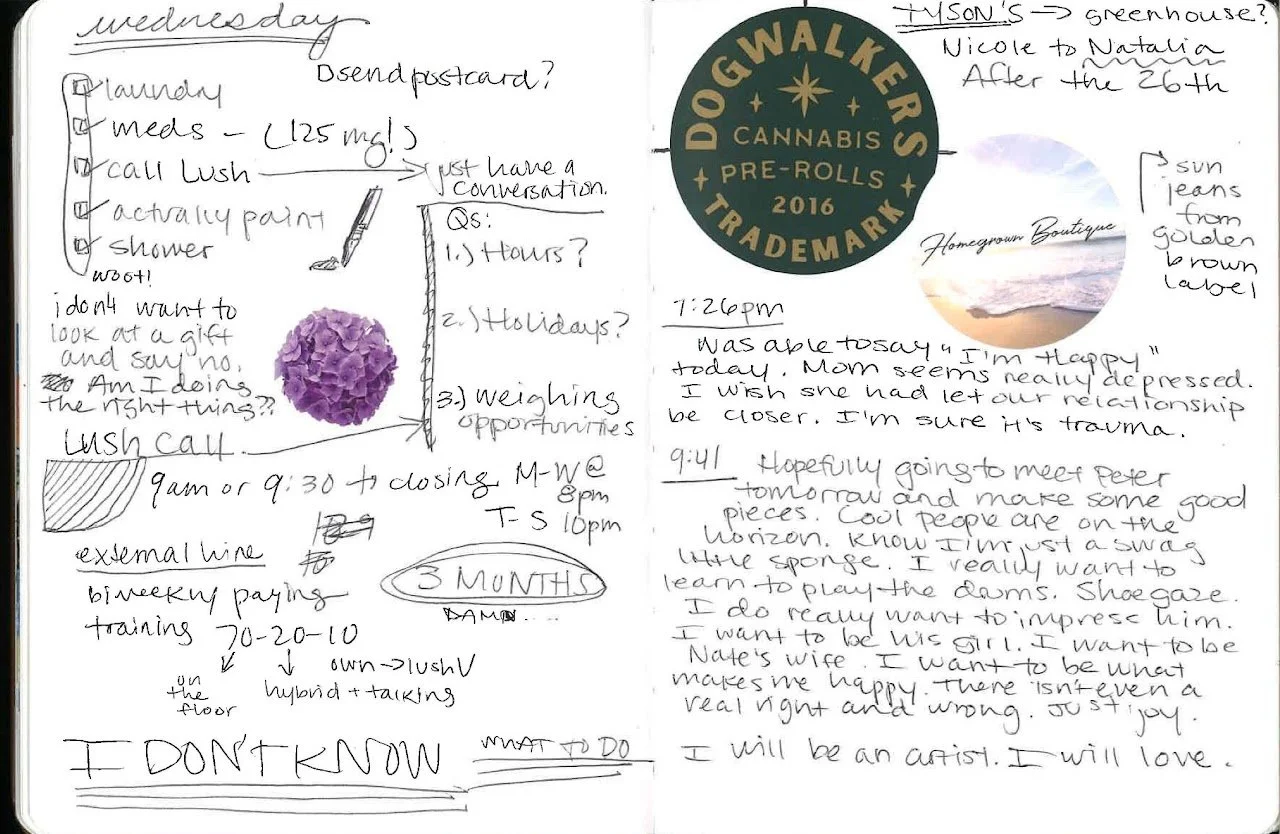 wednesday
send postcard?
laundry
meds – (125 mg!)
call Lush
just have a
conversation.
actually paint
shower
woot!
Qs:
1.) Hours?
2.) Holidays?
3.) weighing
opportunities
i don4 want to
look at a gift
and say no.
Am I doing
the right thing??
LUSH CALL
9am or 9:30 to closing M-W @
8pm
T-S 10pm
external hire
3 MONTHS
DAMN....
biweekly paying
training 70-20-10
on
the
floor
hybrid + talking
own → lush U
I DON'T KNOW
WHAT TO DO
TYSON'S → greenhouse?
Nicole to Natalia
After the 26th
DOGWALKERS
CANNABIS
PRE-ROLLS
2016
TRADEMARK
Homegrown Boutique
sun
jeans
from
golden
brown
label
7:26pm
Was able to say "I'm Happy"
today. Mom seems really depressed.
I wish she had let our relationship
be closer. I'm sure it's trauma.
9:41
Hopefully going to meet Peter
tomorrow and make some good
pieces. Cool people are on the
horizon. Know I'm just a swag
little sponge. I really want to
learn to play the drums. Shoegaze.
I do really want to impress him.
I want to be his girl. I want to be
Nate's wife. I want to be what
makes me happy. There isn't even a
real right and wrong. Just joy.
I will be an artist. I will love.